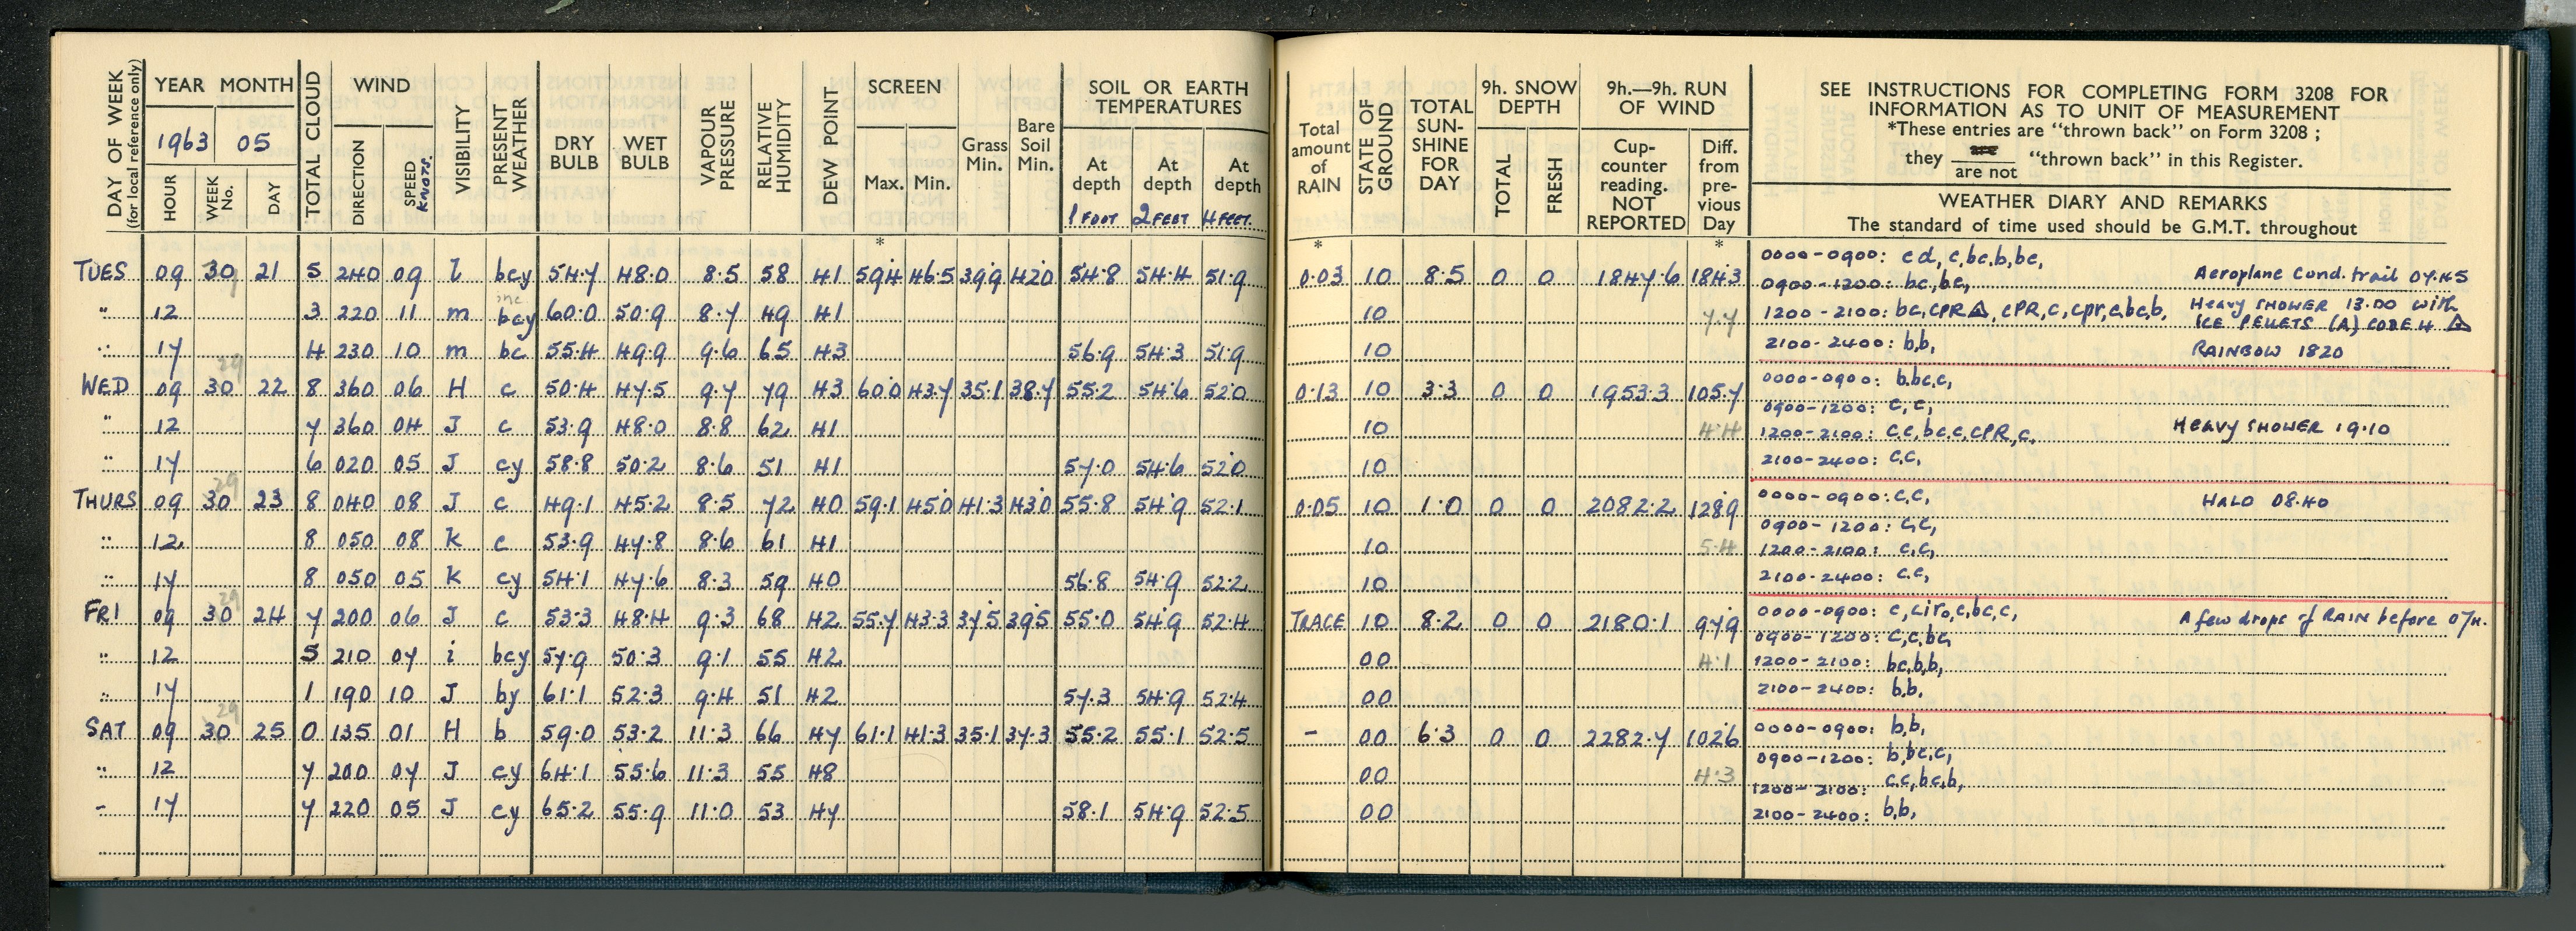 DAY OF WEEK (for local reference only) YEAR MONTH 1963 05 HOUR WEEK No. DAY TOTAL CLOUD WIND DIRECTION SPEED KNOTS. VISIBILITY PRESENT WEATHER DRY BULB WET BULB VAPOUR PRESSURE RELATIVE HUMIDITY DEW POINT SCREEN Max. Min. Grass Min. Bare Soil Min. SOIL OR EARTH TEMPERATURES At depth 1 FOOT At depth 2 FEET At depth 4 FEET.
Total amount of RAIN STATE OF GROUND TOTAL SUN-SHINE FOR DAY 9h. SNOW DEPTH TOTAL FRESH 9h.—9h. RUN OF WIND Cup-counter reading. NOT REPORTED Diff. from pre-vious Day
SEE INSTRUCTIONS FOR COMPLETING FORM 3208 FOR
INFORMATION AS TO UNIT OF MEASUREMENT
*These entries are "thrown back" on Form 3208 ;
they are / are not "thrown back" in this Register.
WEATHER DIARY AND REMARKS
The standard of time used should be G.M.T. throughout
* * *
TUES 09 30 21 5 240 09 l bcy 54.7 48.0 8.5 58 41 59.4 46.5 39.9 42.0 54.8 54.4 51.9
" 12 3 220 11 m bcy 60.0 50.9 8.7 49 41
" 17 4 230 10 m bc 55.4 49.9 9.6 65 43 56.9 54.3 51.9
WED 09 30 22 8 360 06 H c 50.4 47.5 9.7 79 43 60.0 43.7 35.1 38.7 55.2 54.6 52.0
" 12 7 360 04 J c 53.9 48.0 8.8 62 41
" 17 6 020 05 J cy 58.8 50.2 8.6 51 41 57.0 54.6 52.0
THURS 09 30 23 8 040 08 J c 49.1 45.2 8.5 72 40 59.1 45.0 41.3 43.0 55.8 54.9 52.1
" 12 8 050 08 K c 53.9 47.8 8.6 61 41
" 17 8 050 05 K cy 54.1 47.6 8.3 59 40 56.8 54.9 52.2
FRI 09 30 24 7 200 06 J c 53.3 48.4 9.3 68 42 55.7 43.3 37.5 39.5 55.0 54.9 52.4
" 12 5 210 07 i bcy 57.9 50.3 9.1 55 42
" 17 1 190 10 J by 61.1 52.3 9.4 51 42 57.3 54.9 52.4
SAT 09 30 25 0 135 01 H b 59.0 53.2 11.3 66 47 61.1 41.3 35.1 37.3 55.2 55.1 52.5
" 12 7 200 07 J cy 64.1 55.6 11.3 55 48
- 17 7 220 05 J cy 65.2 55.9 11.0 53 47 58.1 54.9 52.5
0.03 10 8.5 0 0 1847.6 184.3
10 7.7
10
0.13 10 3.3 0 0 1953.3 105.7
10 4.4
10
0.05 10 1.0 0 0 2082.2 128.9
10 5.4
10
TRACE 10 8.2 0 0 2180.1 97.9
00 4.1
00
- 00 6.3 0 0 2282.7 102.6
00 4.3
00
0000-0900: cd, c, bc, b, bc,
0900-1200: bc, bc, Aeroplane Cond. trail 07.45
1200-2100: bc, cPR△, cPR, c, cpr, c, bc, b, Heavy SHOWER 13.00 with
ICE PELLETS (A) CODE 4 △
2100-2400: b,b, RAINBOW 1820
0000-0900: b.bc,c,
0900-1200: c, c,
1200-2100: c.c, bc, c, cPR, c. Heavy SHOWER 19.10
2100-2400: c.c,
0000-0900: c,c, HALO 08.40
0900-1200: c,c,
1200-2100: c,c,
2100-2400: c.c,
0000-0900: c, ciro, c, bc, c, A few drops of RAIN before 07h.
0900-1200: c,c,bc,
1200-2100: bc,b,b,
2100-2400: b,b.
0000-0900: b,b,
0900-1200: b,bc,c,
1200-2100: c.c, bc, b,
2100-2400: b,b,